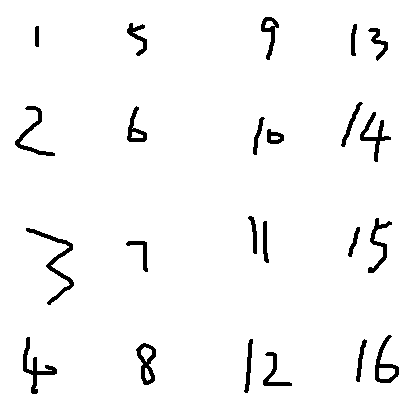 1 5 9 13
2 6 10 14
3 7 11 15
4 8 12 16